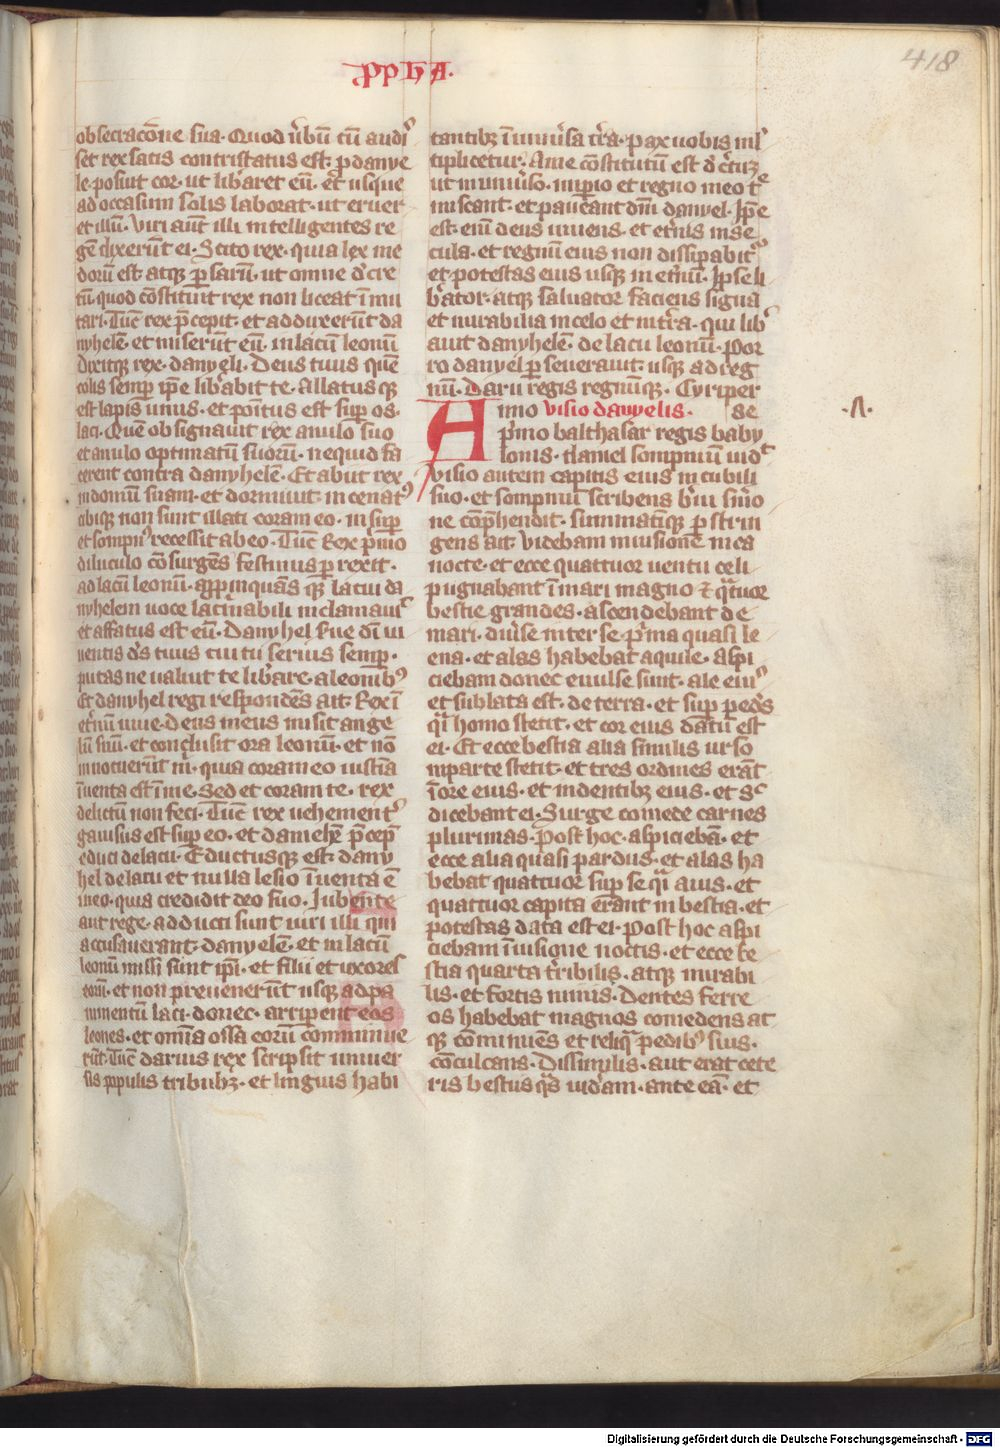 418
pphA.
obsecracōne sua. Quod ůbū cū audi᷒
set rex satis contristatus est. ꝑ danye
le posuit cor. ut libaret eū. et usque
ad occasum solis laborat. ut eruer
et illū. Viri aūt illi intelligentes re
gē dixerūt ei. Scito rex. quia lex me
dorū est atqꝫ ꝑsarū. ut omne dcre
tū quod cōstituit rex non liceat ī mu
tari. Tūc rex p̄cepit. et adduxerūt da
nyhelē. et miserūt eū. in lacū leonū
dixitqꝫ rex. danyeli. Deus tuus quē
colis semp̄ ip̄e libabit te. Allatus qꝫ
est lapis unus. et positus est sup̄ os.
laci. Quē obsignauit rex anulo suo
et anulo optimatū suorū. ne quid fa
cerent contra danyhelē. Et abiit rex
in domū suam. et dormiuit. incenat᷒
cibiqꝫ non sunt illati coram eo. insup̄
et sompn᷒ recessit ab eo. Tūc Rex p̄mo
diluculo cōsurgēs festinus ꝑrexit.
ad lacū leonū. app̄inquās qꝫ lacui da
nyhelem uoce lacimabili inclamauit
et affatus est eū. Danyhel sue dī ui
uentis ds tuus cui tu seruis semp̄.
putas ne ualuit te libare. a leonib᷒
Et danyhel regi respondēs ait. Rex ī
etnū uiue. Deus meus misit ange
lū suū. et conclusit ora leonū. et nō
innocuerūt m. quia coram eo iustīa
īuenta est ī me. Sed et coram te. rex
delictū non feci. Tūc rex uehement᷒
gauisus est sup̄ eo. et danielē p̄cep̄
educi de lacu. Eductusqꝫ est. dany
hel de lacu et nulla lesio īuenta ē
in eo. quia credidit deo suo. Jubente
aut rege. adducti sunt uiri illi qui
accusauerant. danyelē. et in lacū
leonū missi sunt ip̄i. et filii et uxores
eorū. et non preuenerūt usqꝫ ad pa
uimentū laci. donec. arriperent eos
leones. et omīa ossa eorū comminue
rūt. Tūc darius rex scripsit uniuer
sis populis tribubꝫ. et linguis habi
tantibꝫ ī uniůsa tra. pax uobis ml᷒
tiplicetur. A me cōstitutū est dcretuꝫ
ut in uniůso. inperio et regno meo tre
miscant. et paueant dm̄ danyel. Ip̄e
est. enī deus uiuens. et etnis in se
cula. et regnū eius non dissipabit᷒
et potestas eius usqꝫ in etnū. Ip̄e li
bator. atqꝫ saluator faciens signa
et mirabilia in celo et in tra. qui lib
auit danyhelē. de lacu leonū. Por
ro danyel ꝑseuerauit. usqꝫ ad reg
nū. Darii regis regnūqꝫ. Cyri per
Anno visio danyelis. se
p̄mo balthasar regis baby .Λ.
lonis. daniel sompniū uidt
visio autem capitis eius in cubili
suo. et sompniū scribens breui smo
ne cōp̄hendit. summatīqꝫ ꝑstrin
gens ait. Videbam in uisione mea
nocte. et ecce quattuor uenti celi
pugnabant ī mari magno et qttuor
bestie grandes. ascendebant de
mari. diuse inter se. p̄ma quasi le
ena. et alas habebat aquile. aspi
ciebam donec euulse sunt. ale eiu᷒
et sublata est. de terra. et sup̄ pedes
qi homo stetit. et cor eius datū est
ei. Et ecce bestia alia similis urso
inparte stetit. et tres ordines erāt
ī ore eius. et in dentibꝫ eius. et sc
dicebant ei. Surge comede carnes
plurimas. Post hoc. aspiciebā. et
ecce alia quasi pardus. et alas ha
bebat quattuor sup̄ se qi auis. et
quattuor capita erant in bestia. et
potestas data est ei. Post hoc aspi
ciebam ī uisione noctis. et ecce be
stia quarta tribilis. atqꝫ mirabi
lis. et fortis nimis. Dentes ferre
os habebat magnos comedens at
qꝫ cōminuēs et reliq pedib᷒ suis.
cōculcans. Dissimilis. aut erat cete
ris bestiis qs uidam. ante eā. et
Digitalisierung gefördert durch die Deutsche Forschungsgemeinschaft - DFG